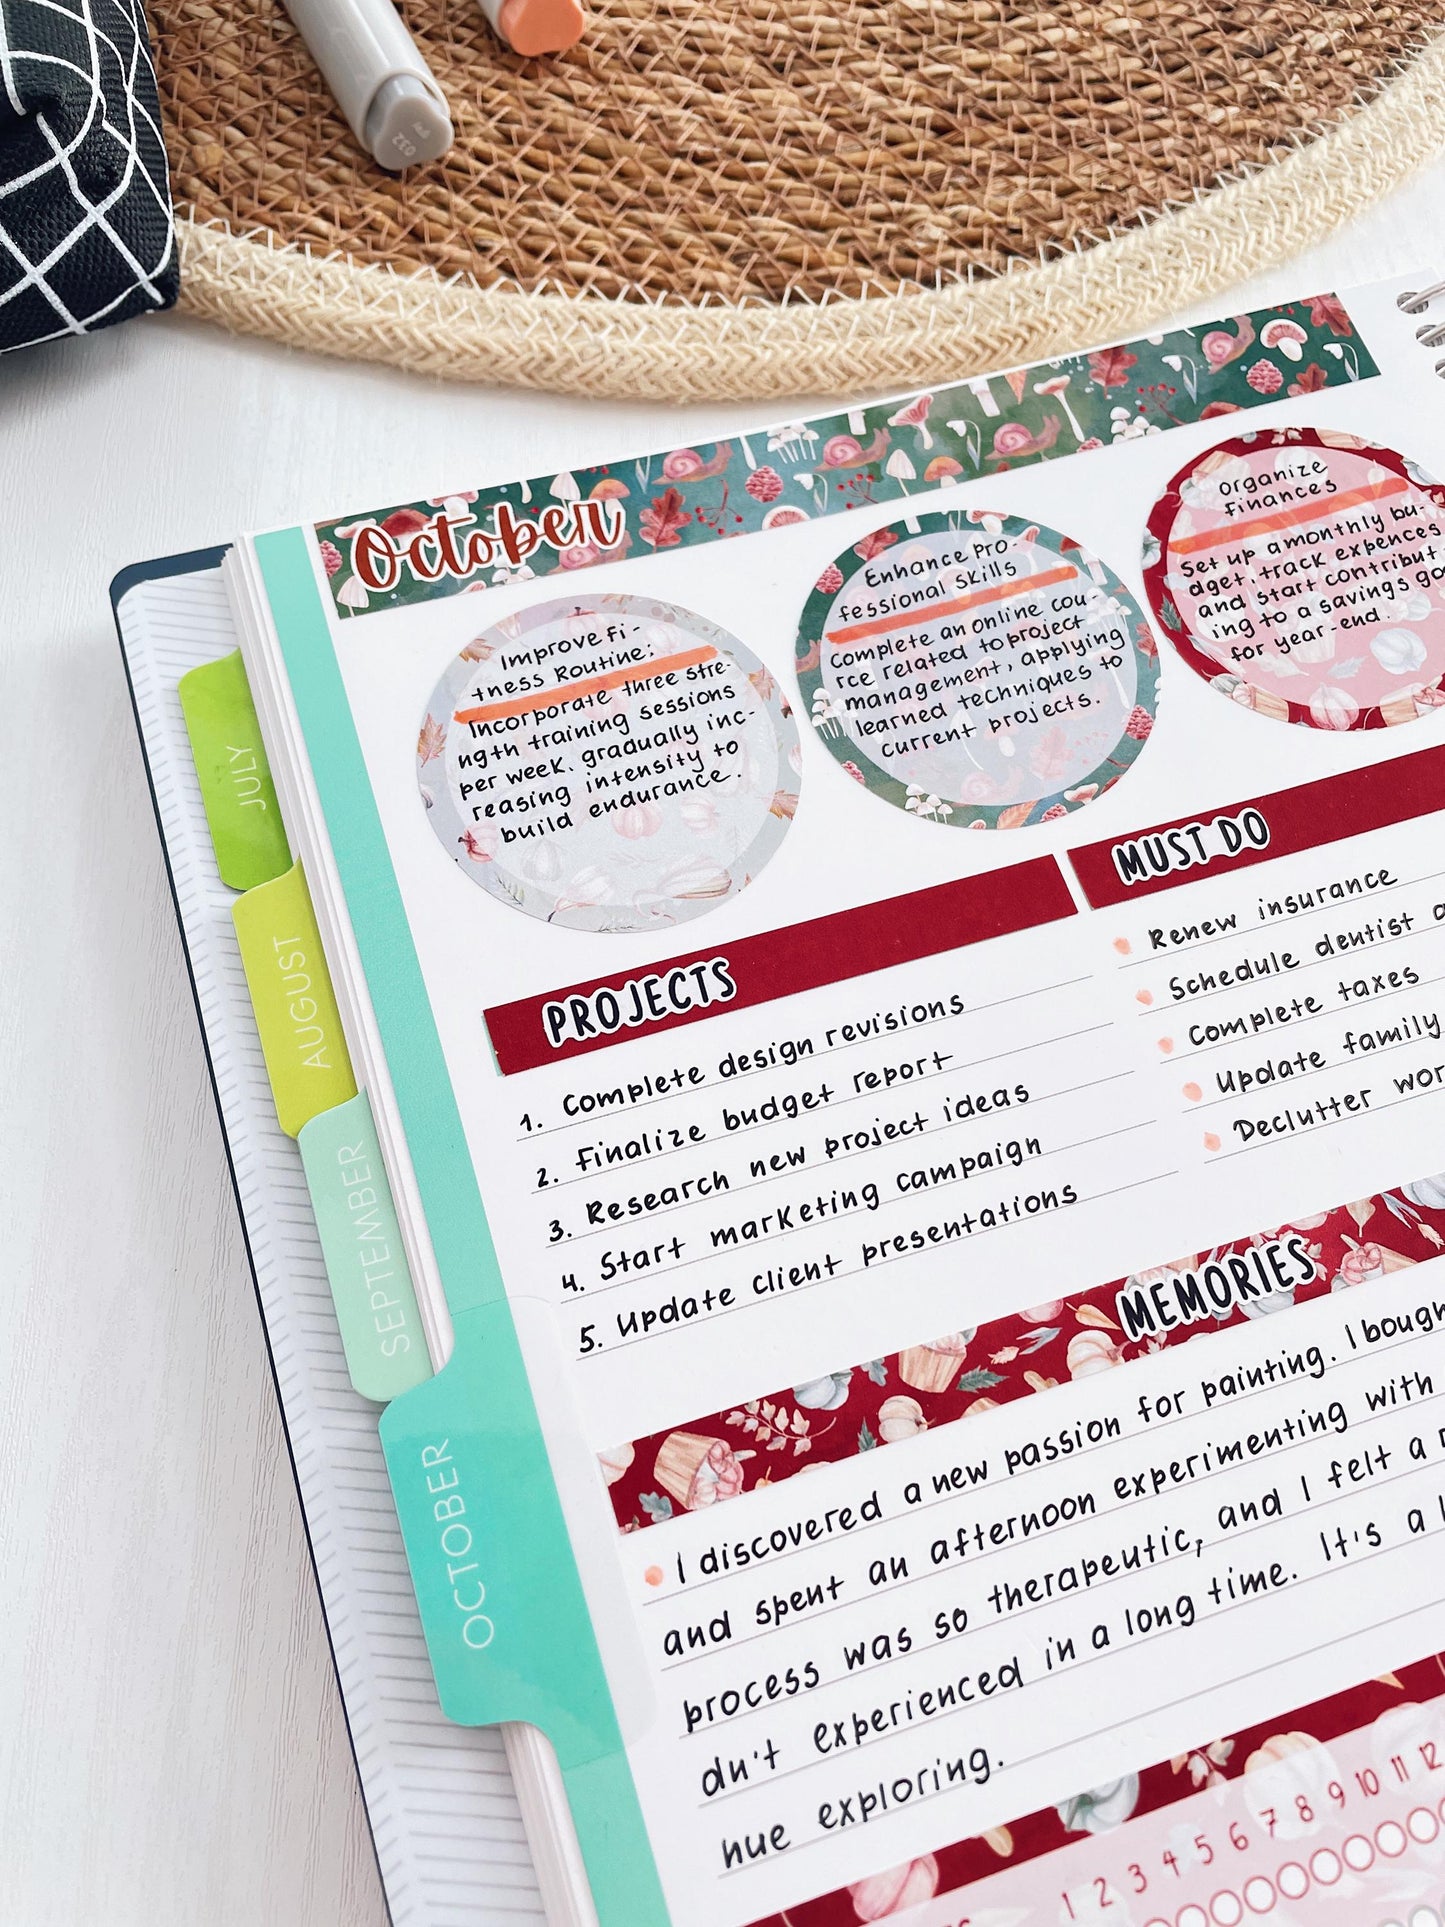 October
Improve Fi-
tness Routine:
Incorporate three stre-
ngth training sessions
per week, gradually inc-
reasing intensity to
build endurance.
Enhance Pro-
fessional Skills
Complete an online cou-
rce related to project
management, applying
learned techniques to
current projects.
Organize
Finances
Set up a monthly bu-
dget, track expences
and start contribut
ing to a savings go
for year-end.
JULY
AUGUST
SEPTEMBER
OCTOBER
PROJECTS
1. Complete design revisions
2. Finalize budget report
3. Research new project ideas
4. Start marketing campaign
5. Update client presentations
MUST DO
Renew insurance
Schedule dentist
Complete taxes
Update family
Declutter wor
MEMORIES
I discovered a new passion for painting. I bough
and spent an afternoon experimenting with
process was so therapeutic, and I felt a
dn't experienced in a long time. It's a
nue exploring.
1 2 3 4 5 6 7 8 9 10 11 12
032